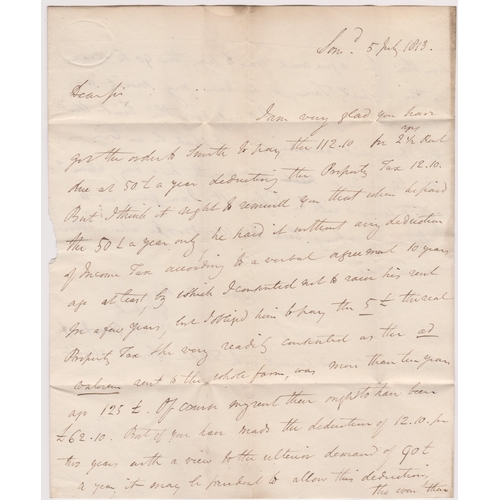 Lon.d 5 July 1813.
Dear Sir
I am very glad you have
got the order to Smith to pay the 112.10 for 2 1/2 yrs Rent
due at 50£ a year deducting the Property Tax 12.10.
But I think it right to remind you that when he paid
the 50£ a year only he paid it without any deduction
of Income Tax according to a verbal agreement 10 years
ago at least, by which I consented not to raise his rent
for a few years, but I obliged him to pay the 5 £ the real
Property Tax & he very readily consented as the ad
valorem rent to the whole farm, was more than ten years
ago 125 £. Of course my rent then ought to have been
£62.10. But if you have made the deduction of 12.10 for
this years with a view to the ulterior demand of 90£
a year it may be prudent to allow this deduction